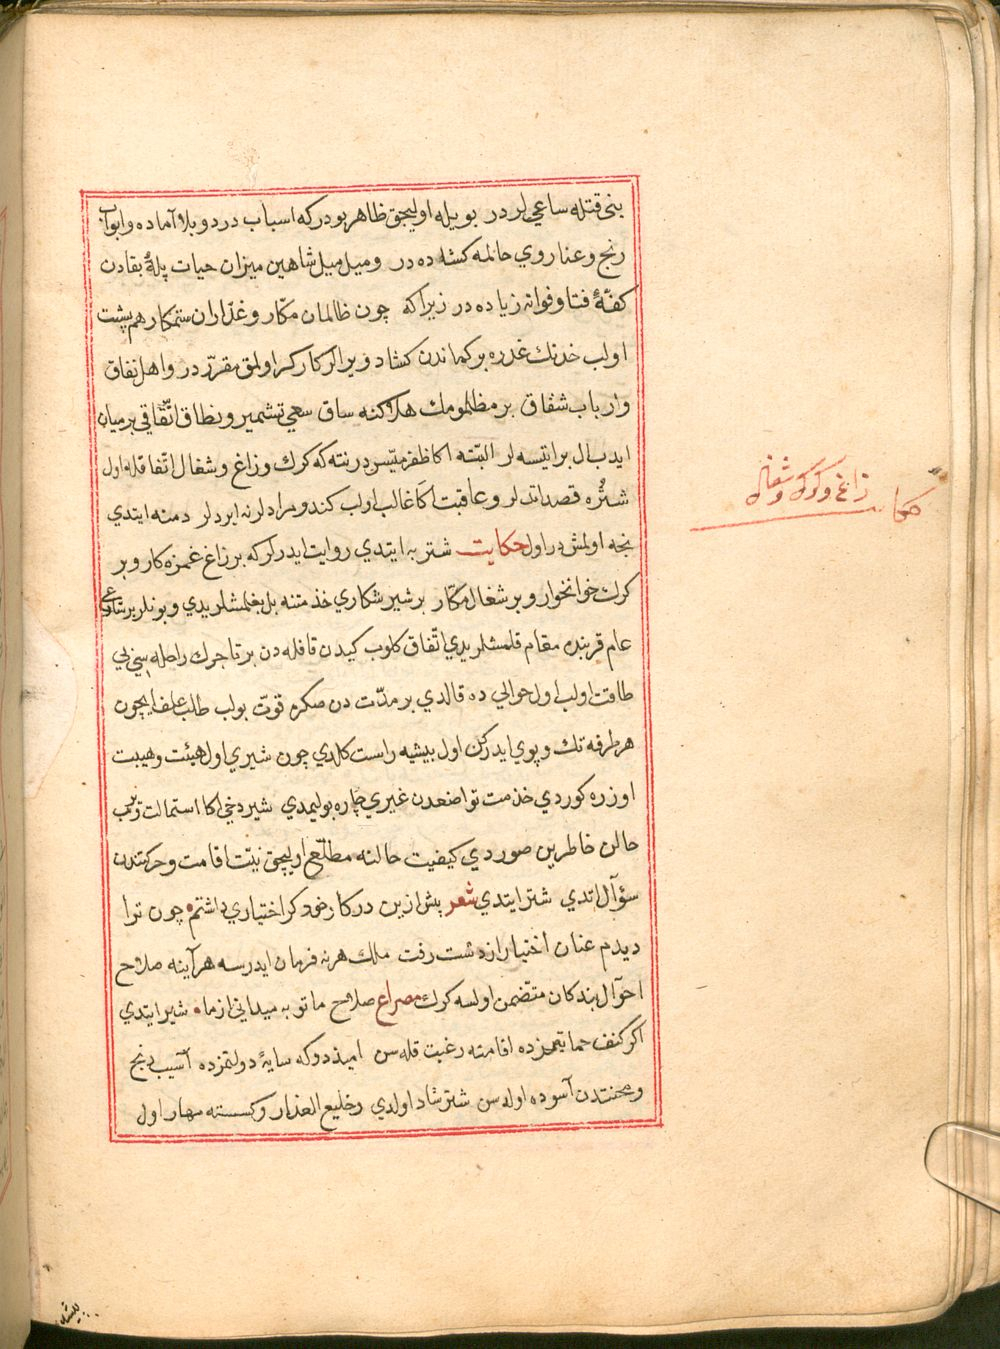 بنی قتله ساعیلردر بویله اولیجق ظاهر بودر که اسباب درد و بلا آماده و ابواب
رنج و عنا روی حالمه کشاده در و میل میل شاهین میزان حیات پلهٔ بقادن
کفّهٔ فنا و فواته زیاده در زیرا که چون ظالمان مکّار و غدّاران ستمکار هم پشت
اولب خدنك غدره بر کماندن کشاد ویرالر کارکر اولمق مقرّردر و اهل نفاق
و ارباب شقاق بر مظلومك هلاکنه ساق سعی تشمیر و نطاق اتّفاقی بر میان
ایدب ال بر ایتسه لر البتّه اکا ظفر میسّر در نته که کرك و زاغ و شغال اتّفاقله اول
شتره قصد اتدلر و عاقبت اکا غالب اولب کندو مرادلرنه ایردلر دمنه ایتدی
نجه اولمش در اول حکایت شتربه ایتدی روایت ایدرلر که بر زاغ غمزه کار و بر
کرك خوانخوار و بر شغال مکّار بر شیر شکاری خذمتنه بل بغلمشلریدی و بونلر بر شارع
عام قربنده مقام قلمشلریدی اتّفاق کلوب کیدن قافله دن بر تاجرك راحله سی بی
طاقت اولب اول حوالی ده قالدی بر مدّت دن صکره قوّت بولب طلب علف ایچون
هر طرفه تك و پوی ایدرکن اول بیشیه راست کلدی چون شیری اول هیئت و هیبت
اوزره کوردی خذمت تواضعدن غیری چاره بولیمدی شیر دخی اکا استمالت ویرب
حالن خاطرین صوردی کیفیت حالنه مطلّع اولیجق نیّت اقامت و حرکتندن
سؤآل اتدی شتر ایتدی شعر پیش ازین در کار خود کر اختیاری داشتم • چون ترا
دیدم عنان اختیار از دست رفت ملك هر نه فرمان ایدرسه هر آینه صلاح
احوآل بندکان متضمن اولسه کرك مصراع صلاح ما تو به میدانی از ما • شیر ایتدی
اکر کنف حمایتمزده اقامته رغبت قله سن امیددر که سایهٔ دولتمزده آسیب رنج
و محنتدن آسوده اوله سن شتر شاد اولدی و خلیع العذار و کسسته مهار اول
حکایت زاغ و کرك و شغال
بیشه